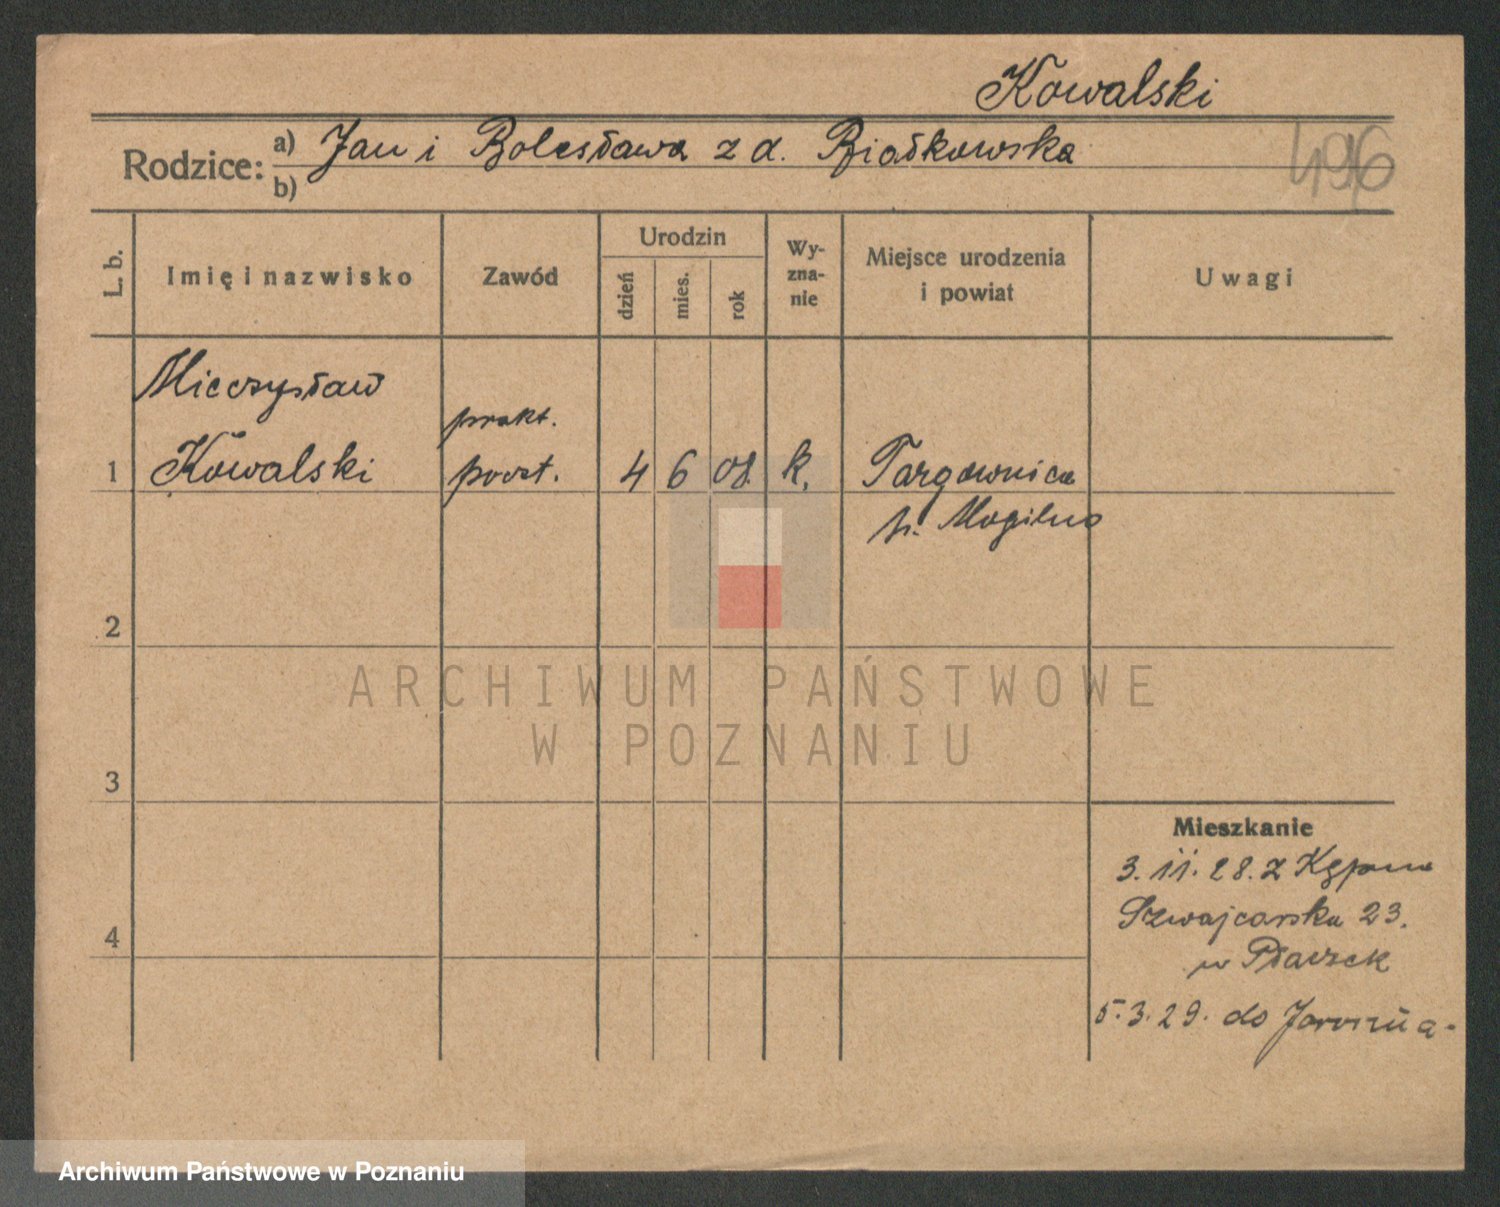 Kowalski
Rodzice: a) Jan i Bolesława z d. Białkowska
b)
496
L. b.
Imię i nazwisko
Zawód
Urodzin
dzień
mies.
rok
Wy-
zna-
nie
Miejsce urodzenia
i powiat
Uwagi
Mieczysław
prakt.
1 Kowalski poczt. 4 6 08. k. Targownica
p. Mogilno
2
ARCHIWUM PAŃSTWOWE
W POZNANIU
3
Mieszkanie
3.11.28. z Kępna
Szwajcarska 23.
4
w Płaczek
5.3.29. do
Archiwum Państwowe w Poznaniu